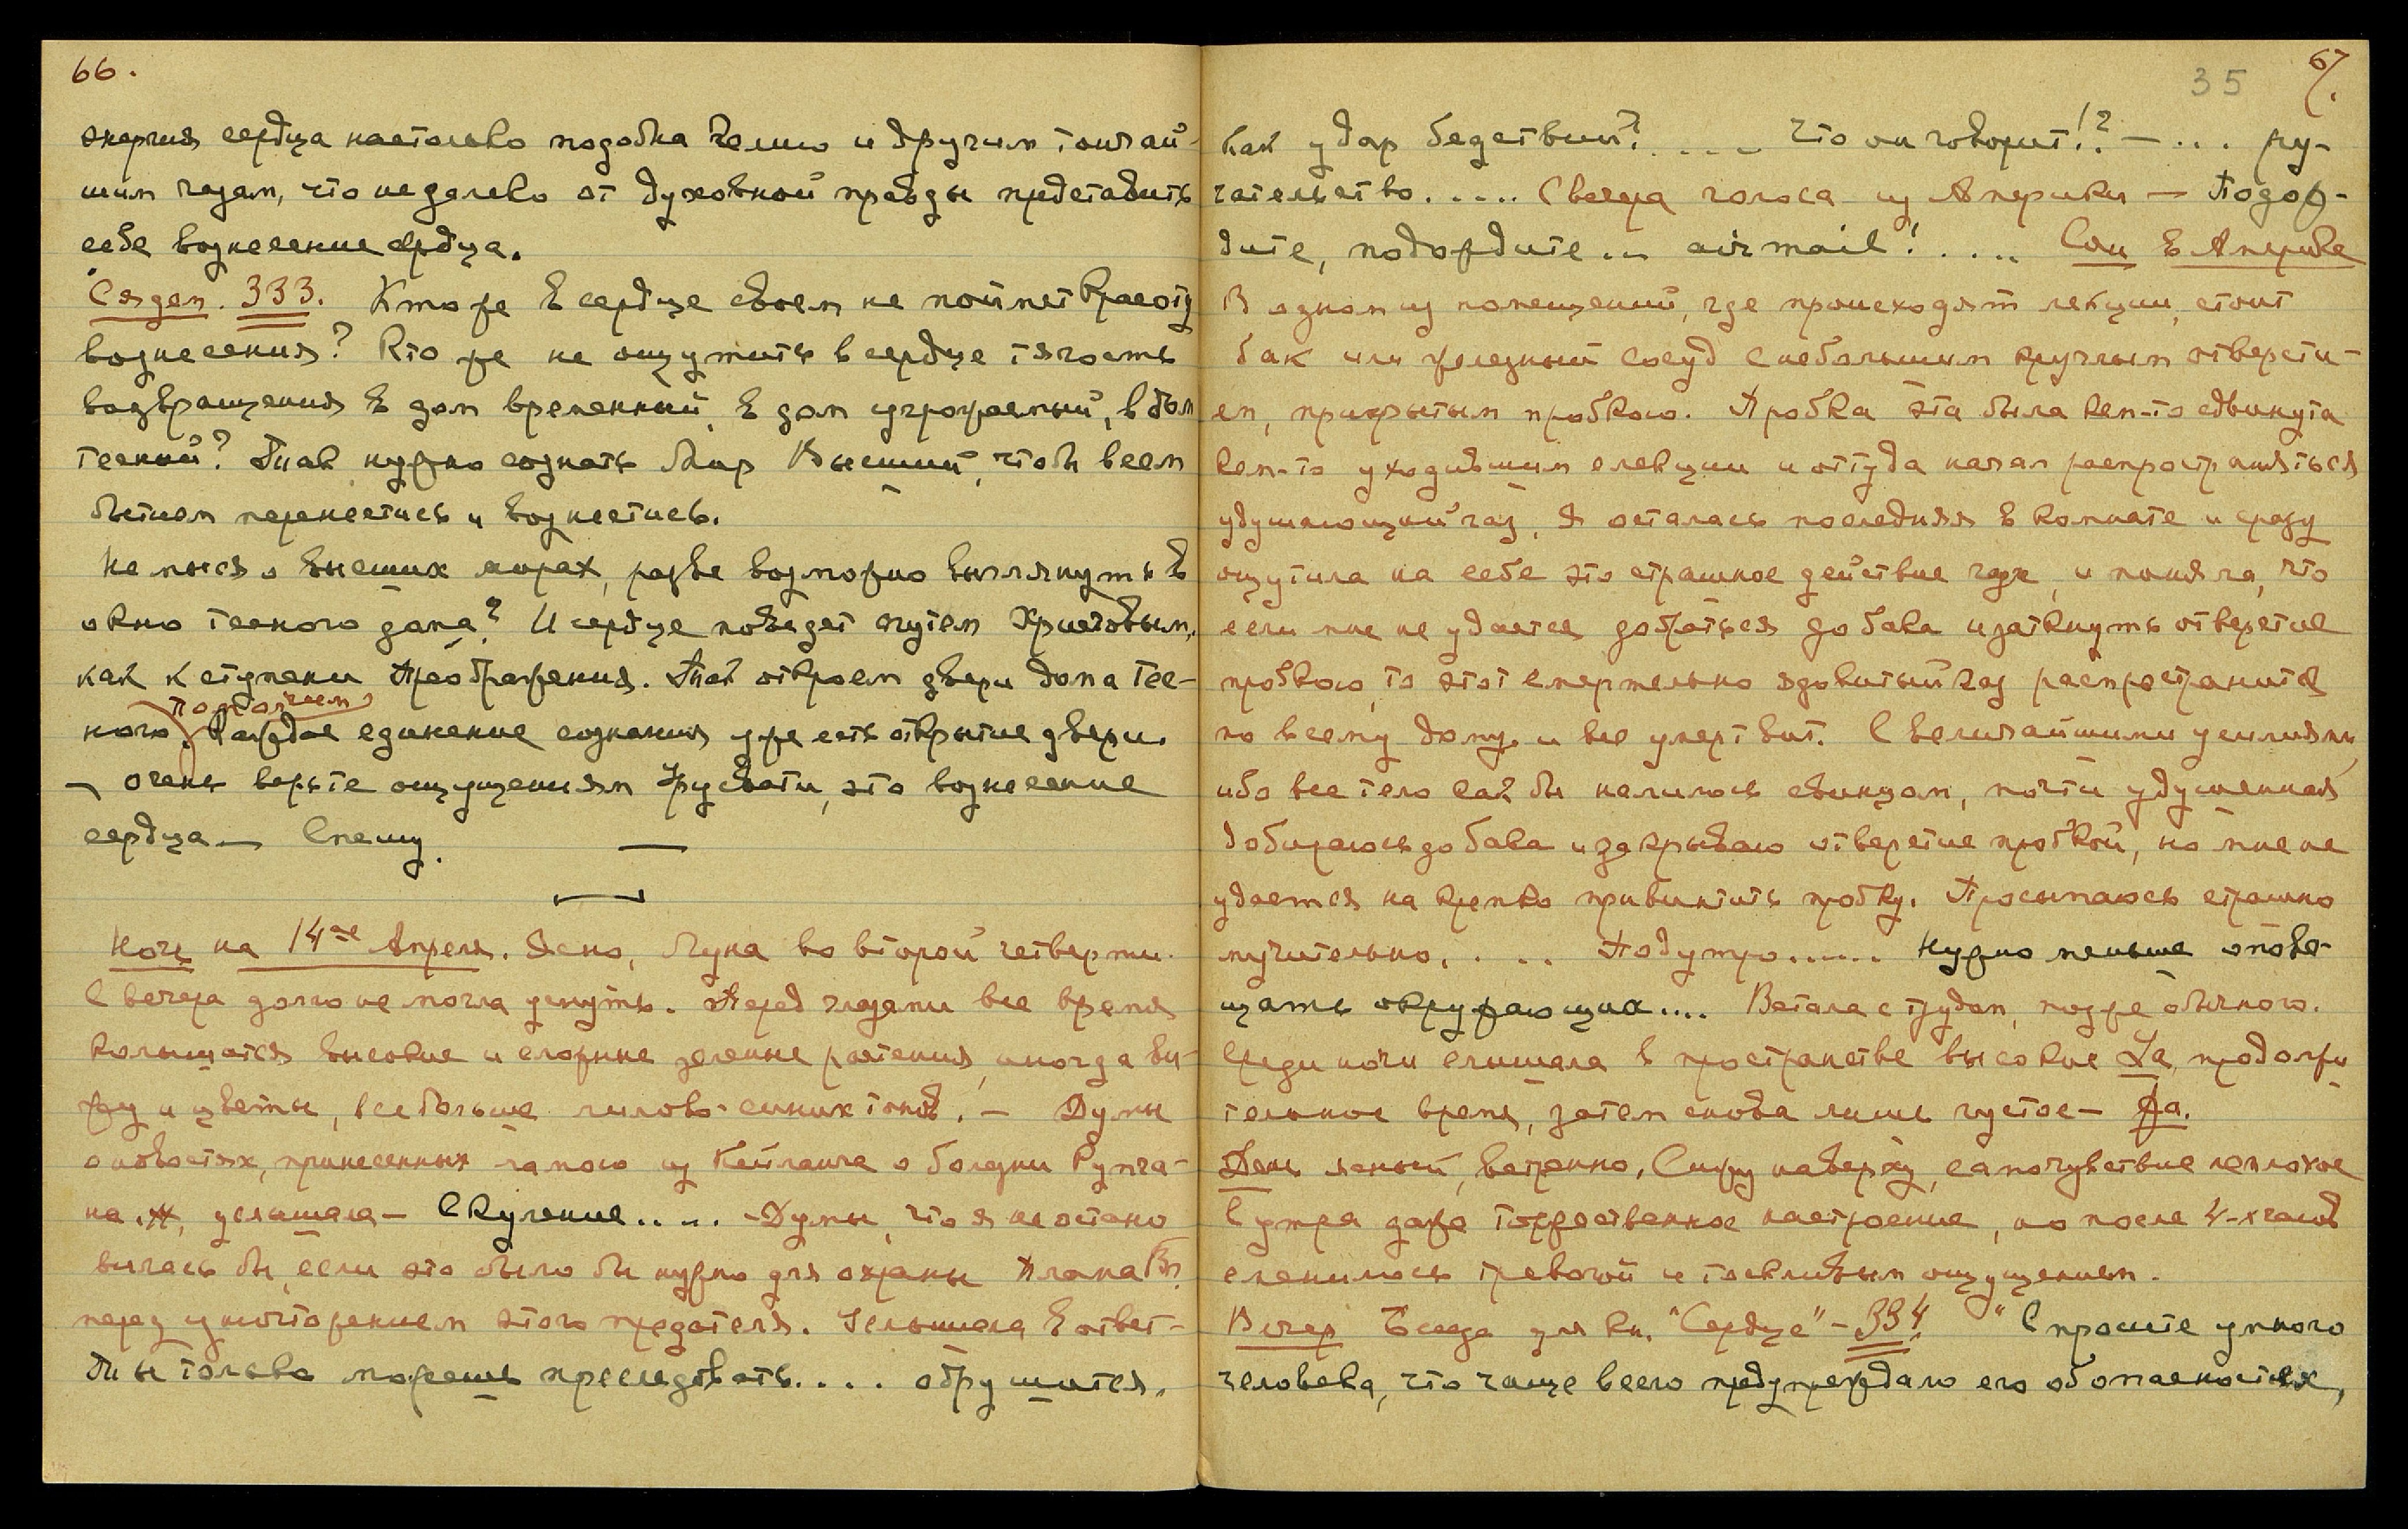 66.
энергия сердца настолько подобна гелию и другим тончай-
шим газам, что недалеко от духовной правды представить
себе вознесение сердца.
333. Кто же в сердце своем не поймет красоту
вознесения? Кто же не ощутить в сердце тягость
возвращения в дом временный, в дом угрожаемый, в дом
тесный? Так нужно сознать Мир Высший, чтобы всем
бытием перенестись и вознестись.
Не мысля о высших мирах, разве возможно выглянуть в
окно тесного дома? И сердце поведет путем Христовым,
как к ступени Преображения. Так откроем двери дома тес-
помолчаем
ного. Каждое единение сознания уже есть открытие двери.
– очень верьте ощущениям Урусвати, это вознесение
сердца — Спешу.
Ночь на 14ое Апреля. Ясно, Луна во второй четверти.
С вечера долго не могла уснуть. Перед глазами все время
колышатся высокие и сложные зеленые растения, иногда ви-
жу и цветы, все больше лилово-синих тонов. — Думы
о новостях, принесенных ламою из Кейланга о болезни
на, услышала — Скуление..... — Думы, что я не остано
вилась бы, если это было бы нужно для охраны Плана Вл.
перед уничтожением этого предателя. Услышала в ответ —
Ты только можешь преследовать.... обрушится.
67.
35
Как удар бедствий?.... Что он говорит!? — ... ру-
чательство..... С вечера голоса из Америки — Подож-
дите, подождите... air mail!..... Сон в Америке
В одном из помещений, где происходят лекции, стоит
бак или железный сосуд с небольшим круглым отверсти-
ем, прикрытым пробкою. Пробка эта была кем-то сдвинута
кем-то уходившим с лекции и оттуда начал распространяться
удушающий газ, я осталась последняя в комнате и сразу
ощутила на себе это страшное действие газа, и поняла, что
если мне не удастся добраться до бака и заткнуть отверстие
пробкою, то этот смертельно ядовитый газ распространится
по всему дому и все умертвит. С величайшими усилиями,
ибо все тело как бы налилось свинцом, почти удушенная
добираюсь до бака и закрываю отверстие пробкой, но мне не
удается на крепко привинтить пробку. Просыпаюсь страшно
мучительно. ... Под утро...... Нужно меньше опове-
щать окружающих.... Встала с трудом, позже обычного.
Среди ночи слышала в пространстве высокие La, продолжи
тельное время, затем снова лишь густое — Fa.
День ясный, ветренно. Сижу наверху, самочувствие неплохое
С утра даже торжественное настроение, но после 4-х часов
сменилось тревогой и тоскливым ощущением.
Вечер Беседа для кн. "Сердце" — 334. "Спросите умного
человека, что чаще всего предупреждало его об опасностях,